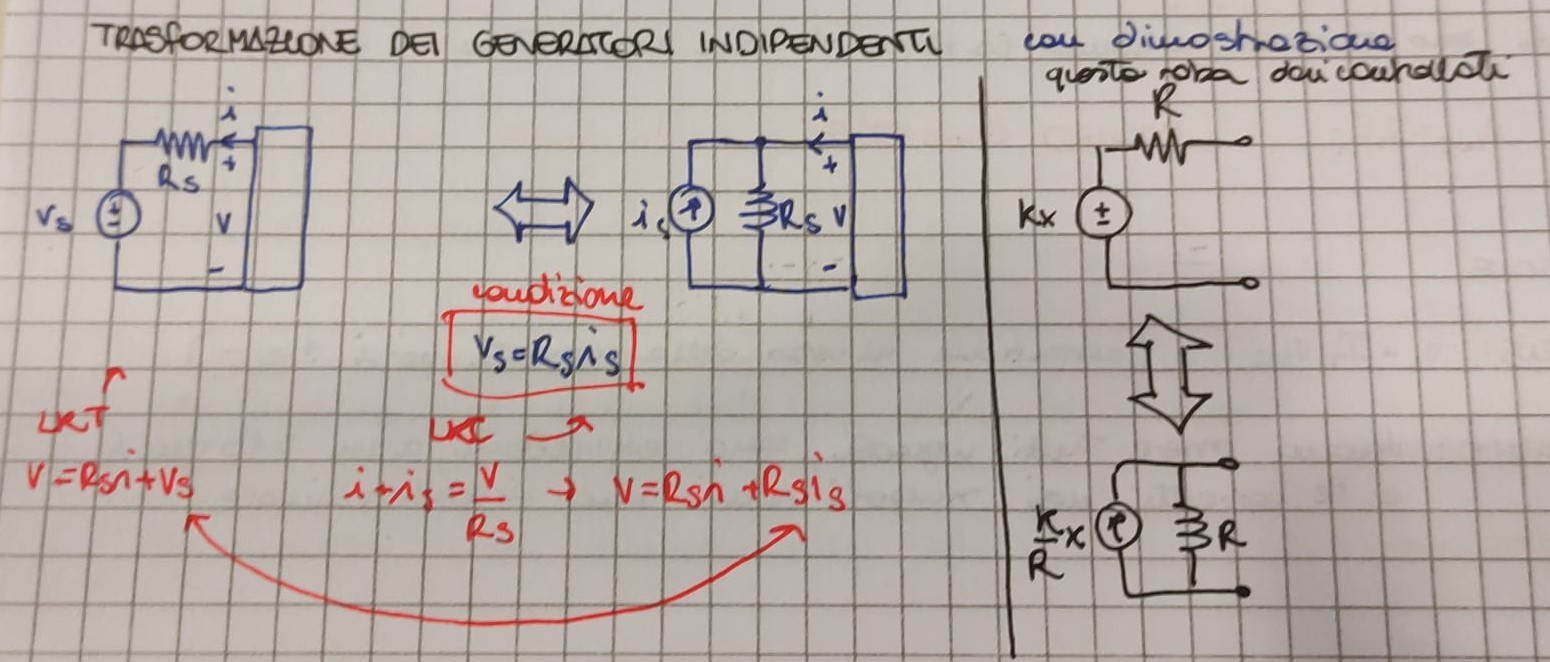 TRASFORMAZIONE DEI GENERATORI INDIPENDENTI
con dimostrazione
questa roba dai controllati
i
+
Rs
Vs
±
V
-
i
+
is
Rs
V
-
condizione
Vs=Rsis
LKT
LKC
V=Rsi+Vs
i+is=V/Rs → V=Rsi+Rsis
R
Kx
±
K/R x
R